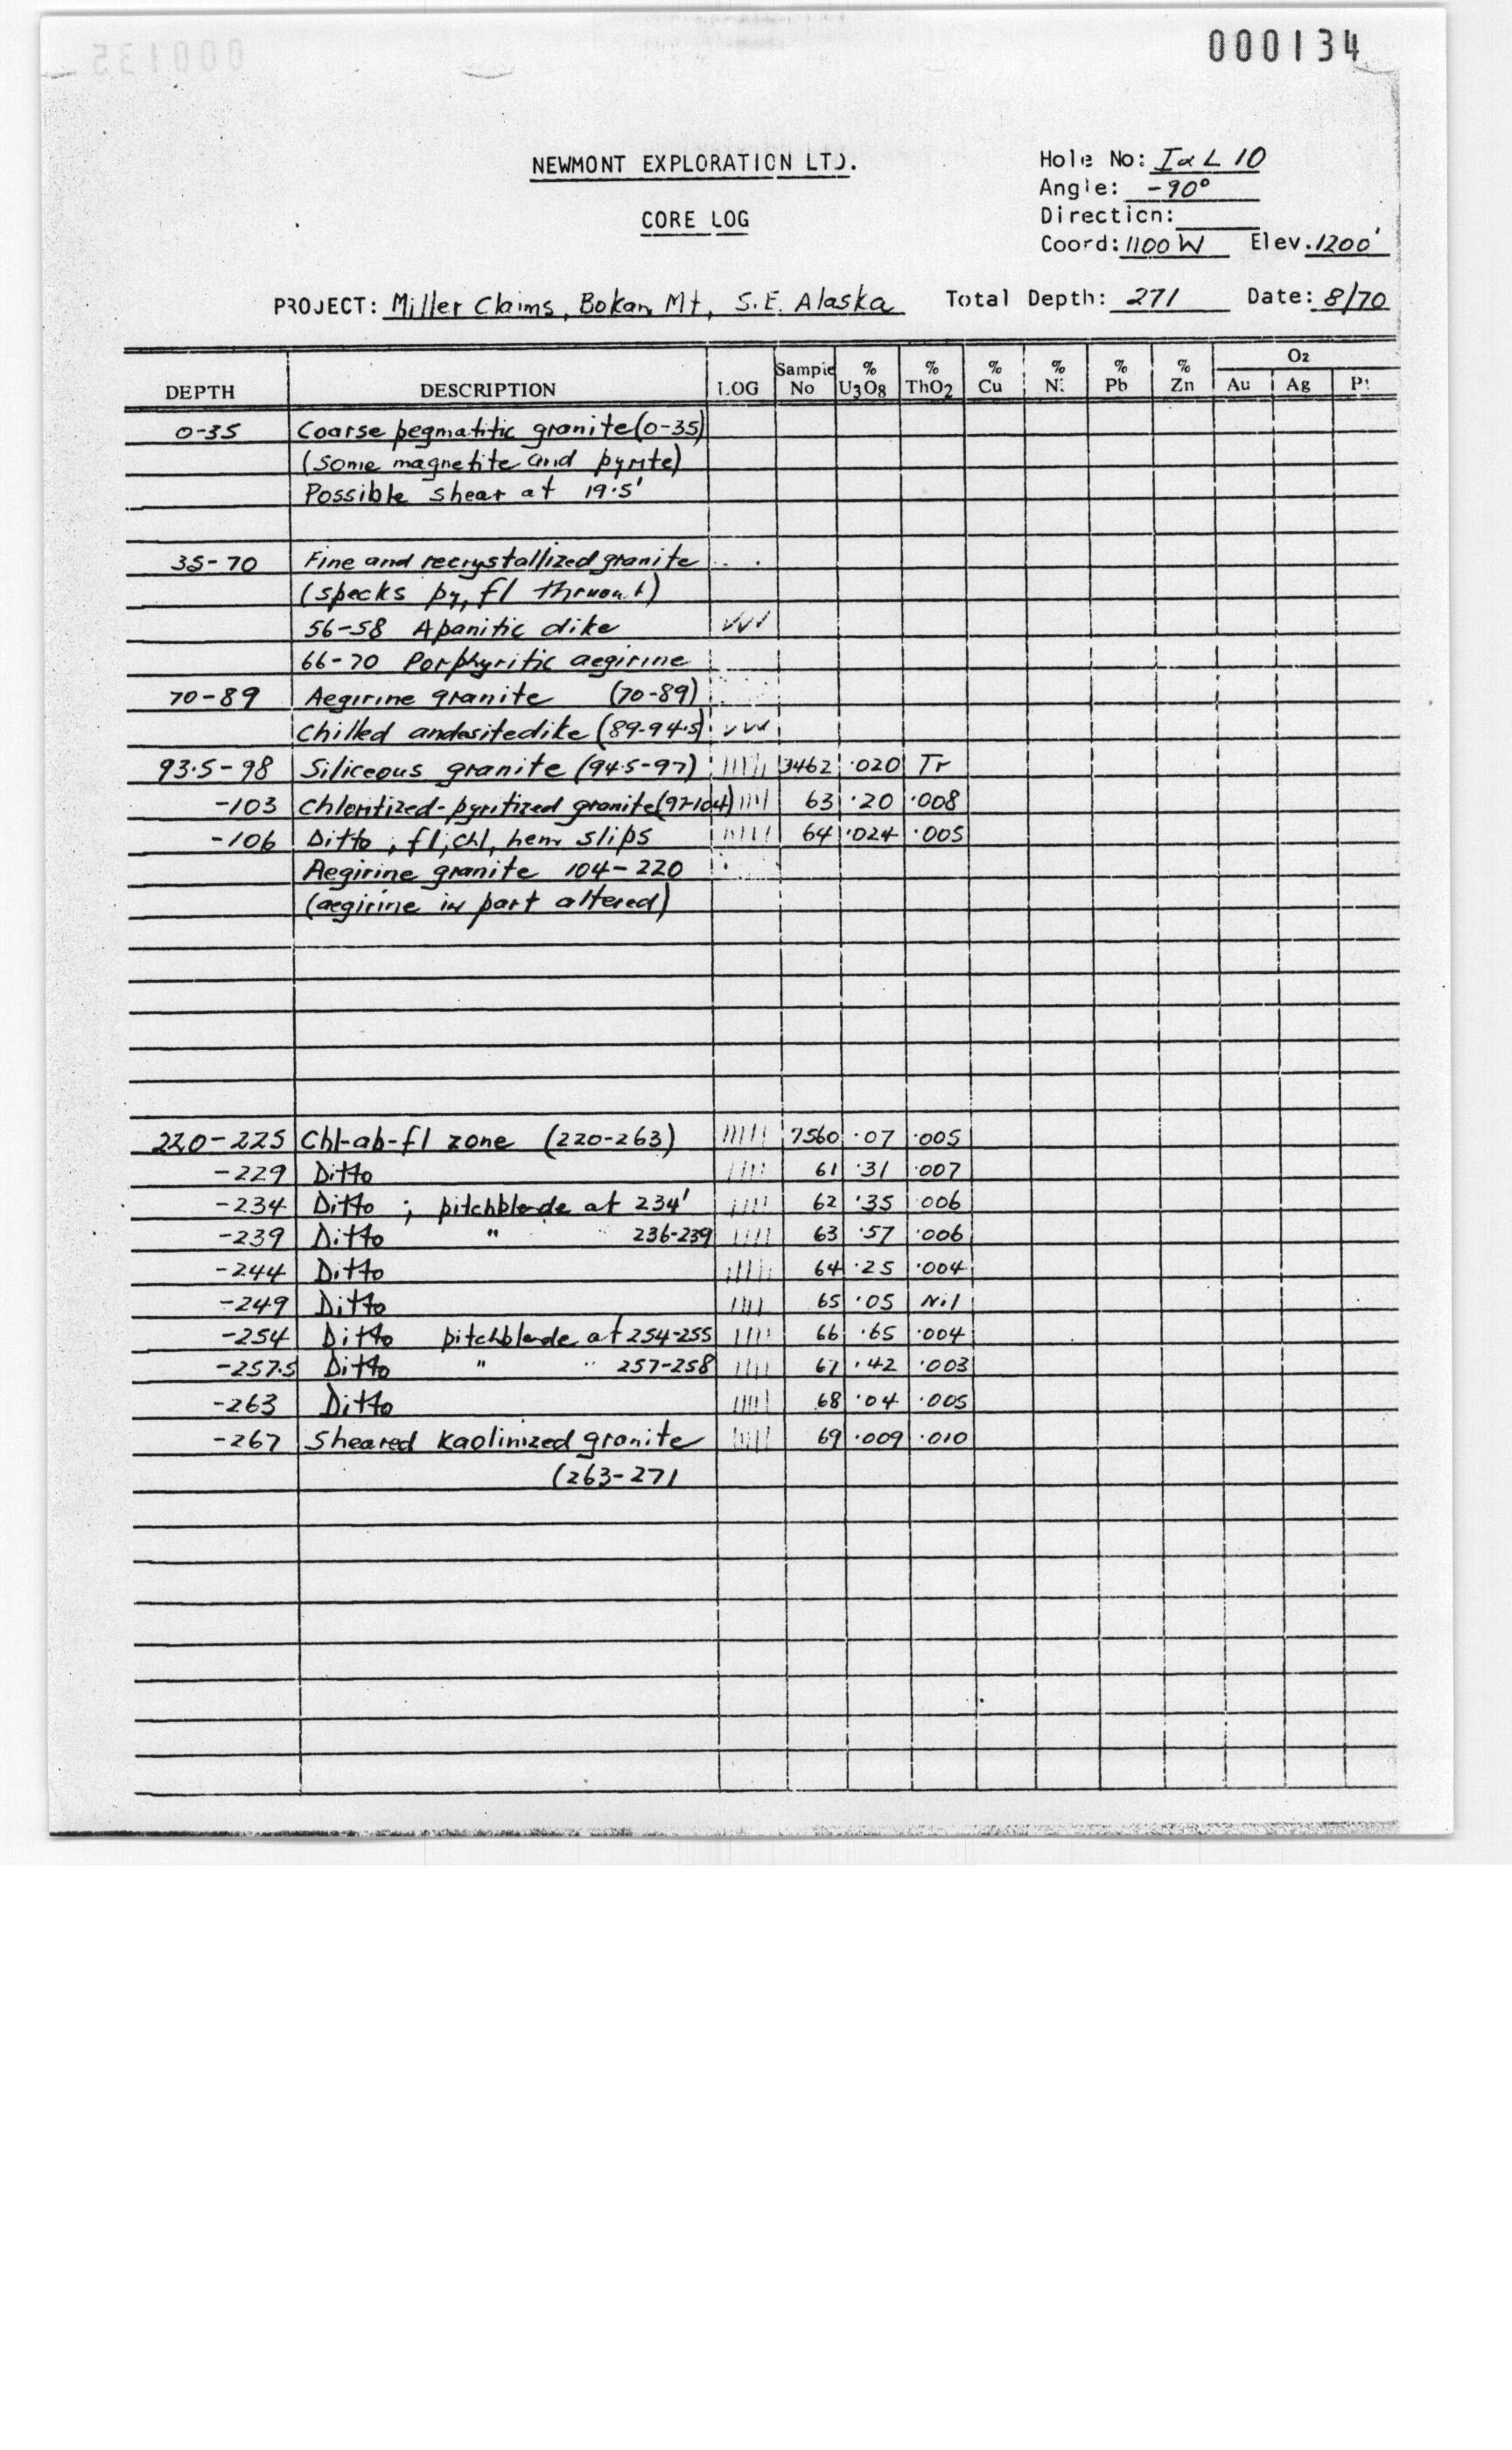 000134
000135
NEWMONT EXPLORATION LTD.
Hole No: I & L 10
Angle: -90°
CORE LOG
Direction:
Coord: 1100 W Elev. 1200'
PROJECT: Miller Claims, Bokan Mt, S.E. Alaska Total Depth: 271 Date: 8/70
DEPTH DESCRIPTION LOG Sample No % U3O8 % ThO2 % Cu % Ni % Pb % Zn O2 Au Ag Pt
0-35 Coarse pegmatitic granite (0-35)
(some magnetite and pyrite)
Possible shear at 19.5'
35-70 Fine and recrystallized granite
(specks py, fl thruout)
56-58 Apanitic dike
66-70 Porphyritic aegirine
70-89 Aegirine granite (70-89)
Chilled andesite dike (89-94.5)
93.5-98 Siliceous granite (94.5-97) 3462 .020 Tr
-103 Chloritized-pyritized granite (97-104) 63 .20 .008
-106 Ditto ; fl, chl, hem slips 64 .024 .005
Aegirine granite 104-220
(aegirine in part altered)
220-225 Chl-ab-fl zone (220-263) 7560 .07 .005
-229 Ditto 61 .31 .007
-234 Ditto ; pitchblende at 234' 62 .35 .006
-239 Ditto " " 236-239 63 .57 .006
-244 Ditto 64 .25 .004
-249 Ditto 65 .05 Nil
-254 Ditto pitchblende at 254-255 66 .65 .004
-257.5 Ditto " " 257-258 67 .42 .003
-263 Ditto 68 .04 .005
-267 Sheared kaolinized granite 69 .009 .010
(263-271